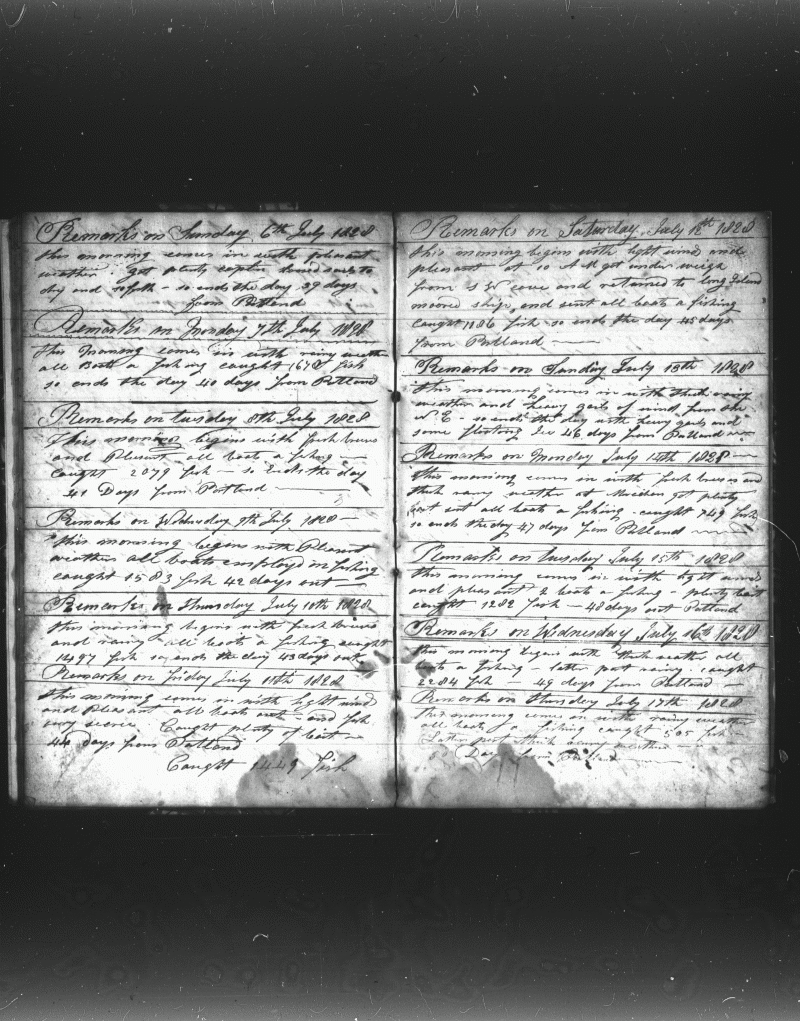 Remarks on Sunday 6th July 1828
this morning comes in with pleasant
weather got plenty caplin hawed to
dry and refresh - so ends the day 39 days
from Portland
Remarks on Monday 7th July 1828
this Morning comes in with rainy weather
all Boats a fishing caught 1672 fish
so ends the day 40 days from Portland
Remarks on tuesday 8th July 1828
This morning begins with fresh breeses
and Pleasent all boats a fishing
caught 2079 fish - so Ends the day
41 Days from Portland
Remarks on Wednesday 9th July 1828
this morning begins with Pleasent
weather all boats employed in fishing
caught 1583 fish 42 days out
Remarks on thursday July 10th 1828
this morning begins with fresh breeses
and rainy all boats a fishing caught
1497 fish so ends the day 43 days out
Remarks on friday July 11th 1828
this morning comes in with light wind
and Pleasant all boats out and fish
very scarce Caught plenty of bait
44 Days from Portland
Caught 1449 fish
Remarks on Saturday July 12th 1828
this morning begins with light wind and
pleasant at 10 AM got under weigh
from S W cove and returned to long Island
moored ship, and sent all boats a fishing
caught 1186 fish so ends the day 45 days
from Portland
Remarks on Sunday July 13th 1828
this morning comes in with thick rainy
weather and heavy gails of wind from the
N E - so ends the day with heavy gails and
some floating Ice 46 days from Portland
Remarks on Monday July 14th 1828
this morning comes in with fresh breeses and
thick rainy weather at Meridian got plenty
bait sent all boats a fishing caught 749 fish
so ends the day 47 days from Portland
Remarks on tuesday July 15th 1828
this morning comes in with light wind
and pleasant 2 boats a fishing - plenty bait
caught 1282 fish - 48 days out Portland
Remarks on Wednesday July 16th 1828
this morning begins with thick weather all
boats a fishing - latter part rainy caught
2284 fish - 49 days from Portland
Remarks on thursday July 17th 1828
this morning comes on with rainy weather
all boats a fishing caught 505 fish
Latter part thick rainy weather
Days from Portland